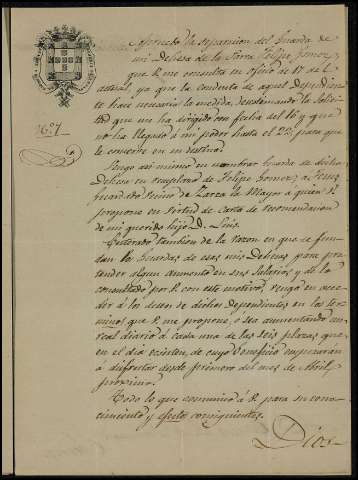 Apruebo la separacion del Guarda de
mi Dehesa de la Torre Felipe Gomez,
que V. me consulta en oficio de 17 del
actual, ya que la conducta de aquel Dependien-
te hace necesaria la medida, desestimando la Solici-
tud que me ha dirigido con fecha del 16 y que
no ha llegado á mi poder hasta el 22, para que
le conserve en su destino.
Tengo asi mismo en nombrar Guarda de dicha
Dehesa en reemplazo de Felipe Gomez, á
de Zarza la Mayor á quien V.
propone en virtud de Carta de recomendacion
de mi querido hijo D. Luis.
Enterado tambien de la razon en que se fun-
dan los Guardas de esas mis Dehesas para pre-
tender algun aumento en sus Salarios, y de lo
consultado por V. con este motivo, vengo en acce-
der á los deseos de dichos Dependientes en los ter-
minos que V. me propone, ó sea aumentando un
real diario á cada una de las seis plazas que
en el dia existen, de cuyo beneficio empezaran
á disfrutar desde primero del mes de Abril
proximo.
Todo lo que comunico á V. para su cono-
cimiento y efectos consiguientes.
Dios